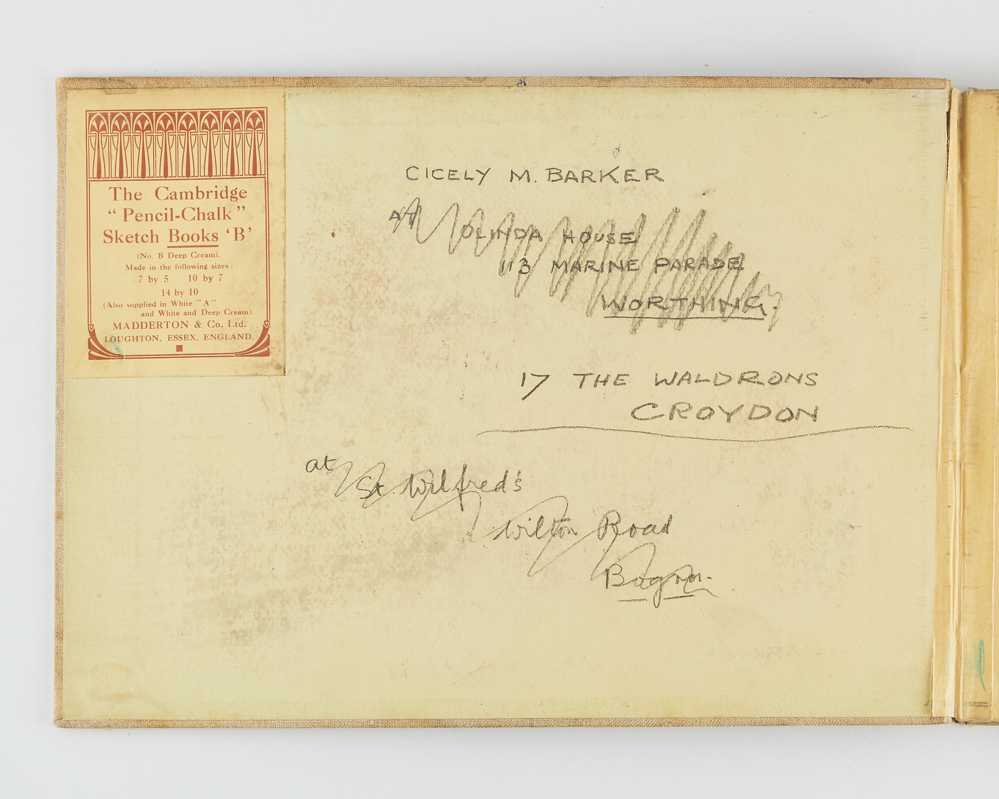 The Cambridge
"Pencil-Chalk"
Sketch Books 'B'
(No. B Deep Cream).
Made in the following sizes:
7 by 5 10 by 7
14 by 10
(Also supplied in White "A"
and White and Deep Cream)
MADDERTON & Co. Ltd.
LOUGHTON, ESSEX, ENGLAND
CICELY M. BARKER
AT OLINDA HOUSE
113 MARINE PARADE
WORTHING
17 THE WALDRONS
CROYDON
at
St Wilfred's
Wilton Road
Bognor.